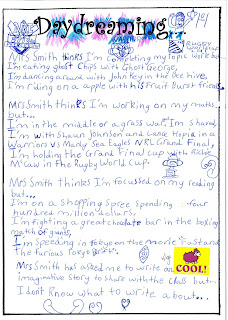 Daydreaming...
Mrs Smith thinks I'm completing my topic work but...
I'm eating ghost Chips with Ghost George,
I'm dancing around with John Key in the Bee hive,
I'm riding on a apple with his Fruit burst friends
Mrs Smith thinks I'm working on my maths
but...
I'm in the middle of a grass war, I'm
I'm with Shaun Johnson and Lance Hopia in a
Warriors vs Manly Sea Eagles NRL Grand Final,
I'm holding the Grand Final cup with Richie
McCaw in the Rugby World Cup.
Mrs Smith Thinks I'm focussed on my reading
but...
I'm on a shopping spree spending four
hundred million dollars,
I'm fighting a great chocolate bar in the boxing
match of giants,
I'm speeding in Tokyo on the movie Fast and
The Furious Tokyo Drift.
Mrs Smith has asked me to write an
imaginative story to share with the class but...
I don't know what to write about...
COOL!